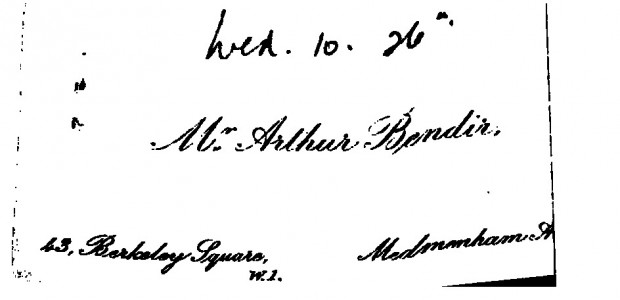 Wed. 10. 26".
Mr. Arthur Bendir.
43, Berkeley Square,
W.1.
Medmenham A